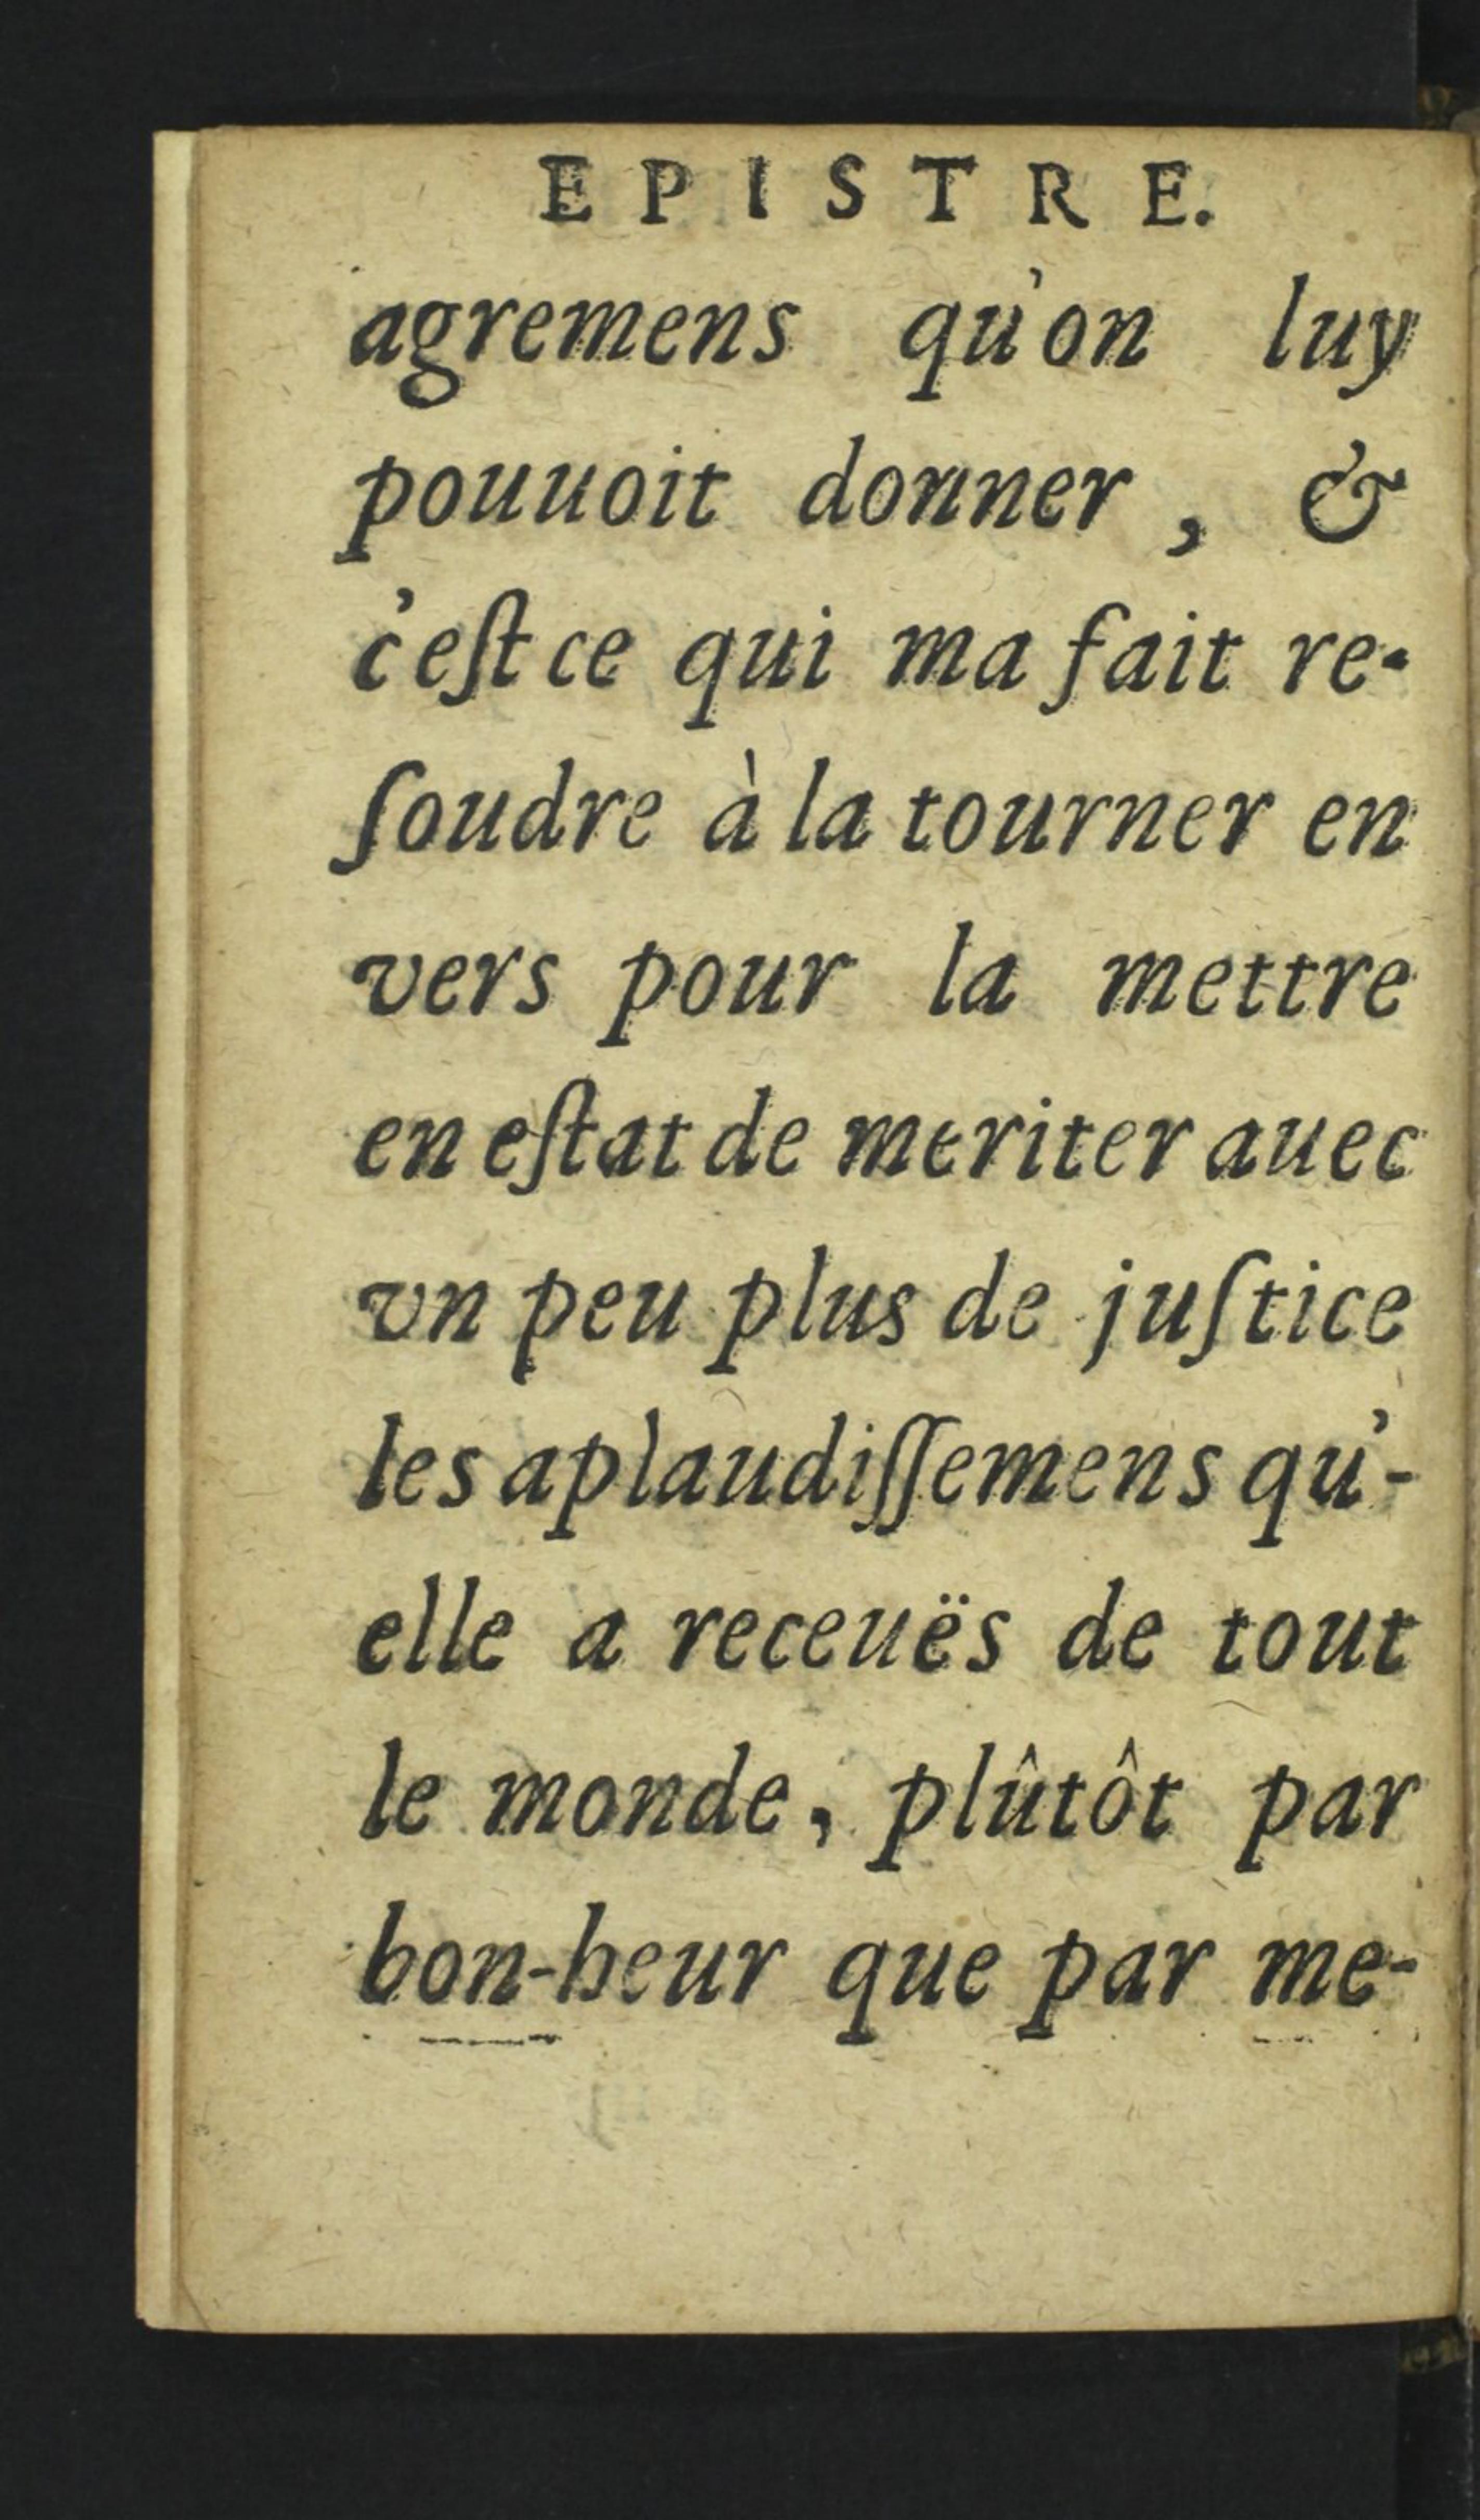 EPISTRE.
agremens qu'on luy
pouuoit donner, &
c'eſt ce qui ma fait re-
ſoudre à la tourner en
vers pour la mettre
en eſtat de meriter auec
vn peu plus de juſtice
les aplaudiſſemens qu'-
elle a receuës de tout
le monde, plûtôt par
bon-heur que par me-